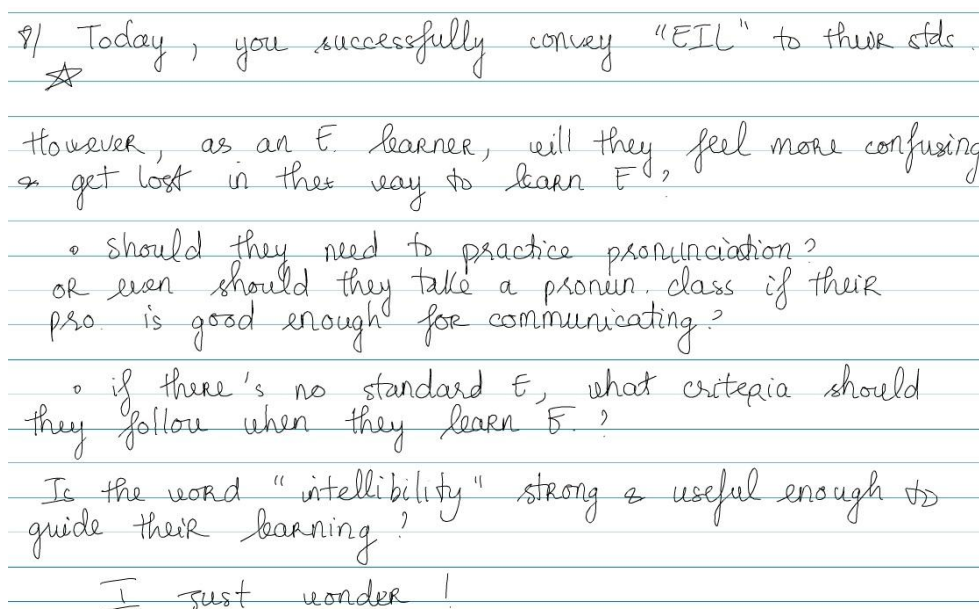 8/ Today, you successfully convey "EIL" to their stds.
However, as an E. learner, will they feel more confusing
& get lost in their way to learn E?
• Should they need to practice pronunciation?
OR even should they take a pronun. class if their
pro. is good enough for communicating?
• if there's no standard E, what criteria should
they follow when they learn E.?
Is the word "intellibility" strong & useful enough to
guide their learning?
I just wonder!